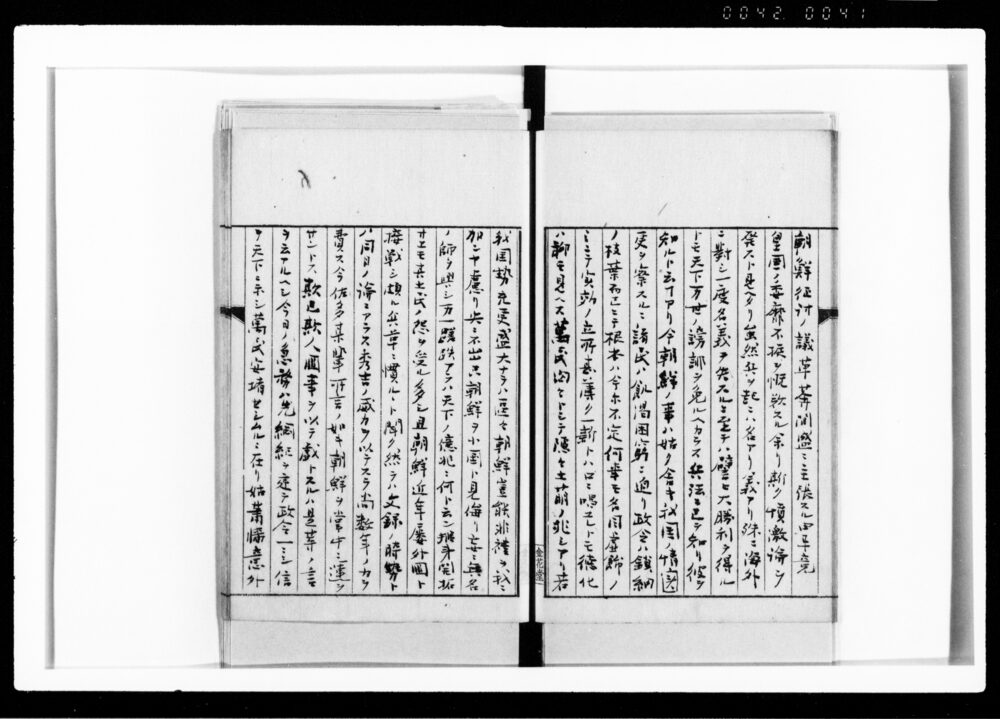 朝鮮征討ノ議草莽間盛ニ主張スル由畢竟
皇国ノ委靡不振ヲ慨歎スル余リ斯ク憤激論ヲ
発スト見ヘタリ虽然兵ヲ起ニハ名アリ義アリ殊ニ海外
ニ對シ一度名義ヲ失スルニ至テハ譬ヒ大勝利ヲ得ル
トモ天下万世ノ謗誹ヲ免ルヘカラス兵法ニ己ヲ知リ彼ヲ
知ルト云フアリ今朝鮮ノ事ハ姑ク舎キ我国ノ情実
更ヲ察スルニ諸民ハ飢渇困窮ニ迫リ政令ハ鎖細
ノ枝葉而已ニテ根本ハ今尓不定何事モ名目虚飾ノ
ミニテ実効ノ立所甚薄ク新トハ口ニ唱エレトモ徳化
ハ聊モ見ヘス萬民洶々トシテ隠々土崩ノ兆シアリ若
我国勢充実盛大ナラハ區々朝鮮豈能非禮ヲ我ニ
加ンヤ慮リ此ニ不出只朝鮮ヲ小国ト見侮リ妄ニ無名
ノ師ヲ興シ万一蹉跌アラハ天下ノ億兆何ト云ン蝦夷開拓
サエモ其土民ノ怨ヲ受ル多シ且朝鮮近年屡外國ト
接戦シ頗ル兵革ニ慣ルト聞ク然ラハ文録ノ時勢ト
ハ同日ノ論ニアラス秀吉ノ威力ヲ以テスラ尚数年ノ力ヲ
費ス今佐多某輩所言ノ如キ朝鮮ヲ掌中ニ運ラ
サントス欺己欺人國事ヲ以テ戯トスルハ是等ノ言
ヲ云フナルヘシ今日ノ急務ハ先綱紀ヲ建テ政令一ニシ信
ヲ天下ニ示シ萬民安堵セシムルニ在リ姑蕭墻意外
金花堂
0042 0041